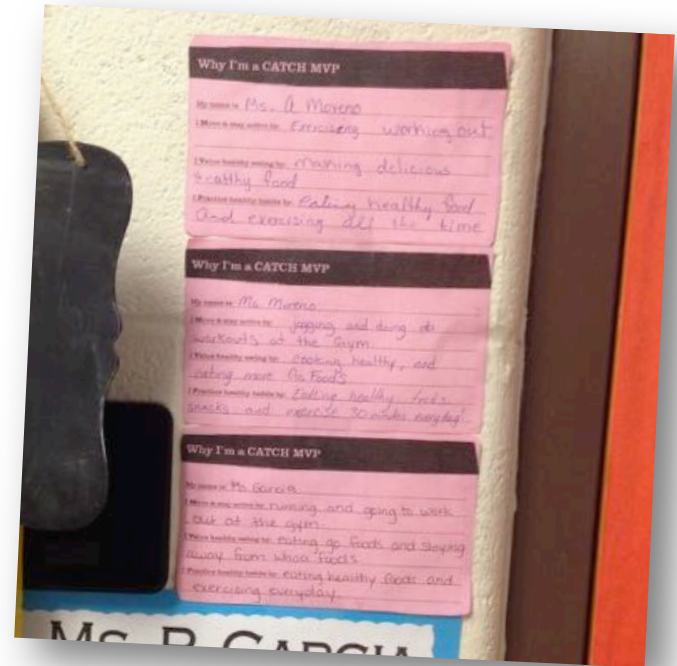 Why I'm a CATCH MVP
My name is: Ms. A Moreno
I Move & stay active by: Exercising working out
I Value healthy eating by: making delicious
healthy food
I Practice healthy habits by: eating healthy food
and exercising all the time
Why I'm a CATCH MVP
My name is: Ms. Moreno
I Move & stay active by: jogging and doing
workouts at the Gym.
I Value healthy eating by: cooking healthy, and
eating more Go Foods
I Practice healthy habits by: Eating healthy
snacks and exercise 30 minutes everyday!
Why I'm a CATCH MVP
My name is: Ms Garcia
I Move & stay active by: running and going to work
out at the gym.
I Value healthy eating by: eating go foods and staying
away from whoa foods
I Practice healthy habits by: eating healthy foods and
exercising everyday.
Ms. R. GARCIA